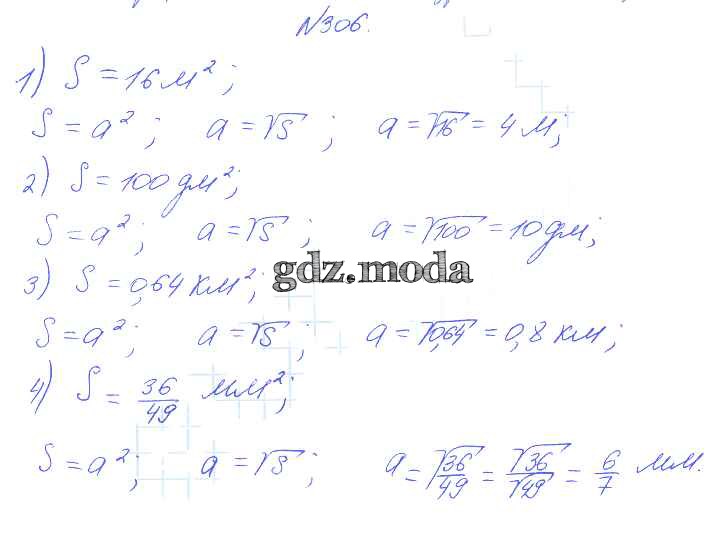 №306.
1) S = 16 м²;
S = a²; a = √S; a = √16 = 4 м;
2) S = 100 дм²;
S = a²; a = √S; a = √100 = 10 дм;
gdz.moda
3) S = 0,64 км²;
S = a²; a = √S; a = √0,64 = 0,8 км;
4) S = 36/49 мм²;
S = a²; a = √S; a = √36/49 = √36/√49 = 6/7 мм.